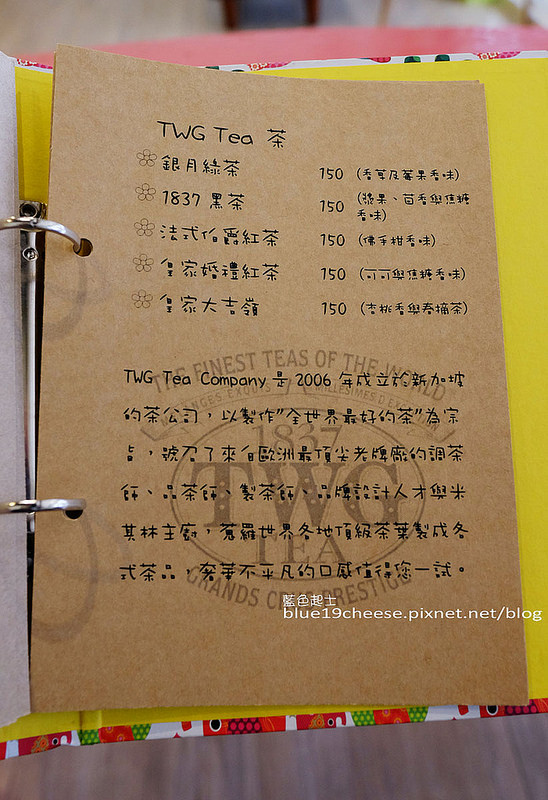 TWG Tea 茶
銀月綠茶 150 (香草及莓果香味)
1837 黑茶 150 (漿果、茴香與焦糖
香味)
法式伯爵紅茶 150 (佛手柑香味)
皇家婚禮紅茶 150 (可可與焦糖香味)
皇家大吉嶺 150 (杏桃香與春摘茶)
THE FINEST TEAS OF THE WORLD
TWG Tea Company 是 2006 年成立於新加坡
的茶公司，以製作"全世界最好的茶"為宗
旨，號召了來自歐洲最頂尖老牌廠的調茶
師、品茶師、製茶師、品牌設計人才與米
其林主廚，蒐羅世界各地頂級茶葉製成各
式茶品，奢華不平凡的口感值得您一試。
1837
TWG
TEA
藍色起士
blue19cheese.pixnet.net/blog